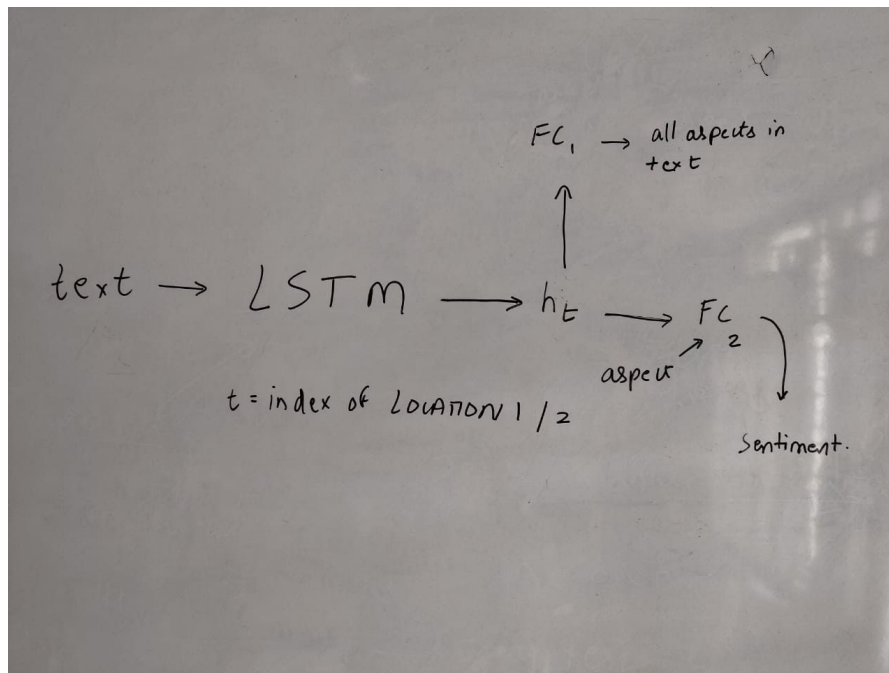 FC₁ → all aspects in
text
text → LSTM → hₜ → FC₂
aspect
t = index of LOCATION 1 / 2
Sentiment.